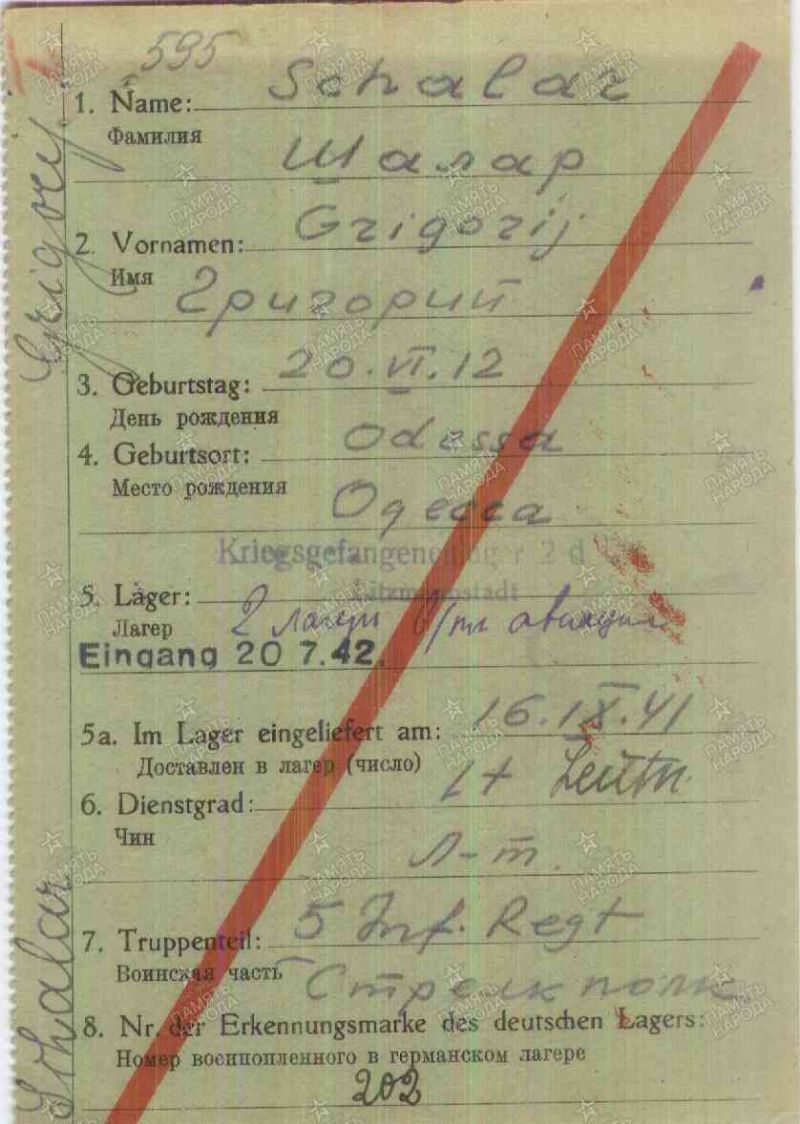 595
1. Name: Schalar
Фамилия
Шалар
2. Vornamen: Grigorij
Имя
Григорий
3. Geburtstag: 20.VI.12
День рождения
4. Geburtsort: Odessa
Место рождения
Одесса
Kriegsgefangenenlager 2 d
Litzmannstadt
5. Lager:
Лагерь 2 лагерь в/пл авиации
Eingang 20 7.42.
5a. Im Lager eingeliefert am: 16.IX.41
Доставлен в лагер (число)
6. Dienstgrad: Lt Leutn.
Чин
Л-т.
7. Truppenteil: 5 Inf. Regt
Воинская часть Стрелк полк.
8. Nr. der Erkennungsmarke des deutschen Lagers:
Номер военнопленного в германском лагере
202
Schalar Grigory
ПАМЯТЬ НАРОДА